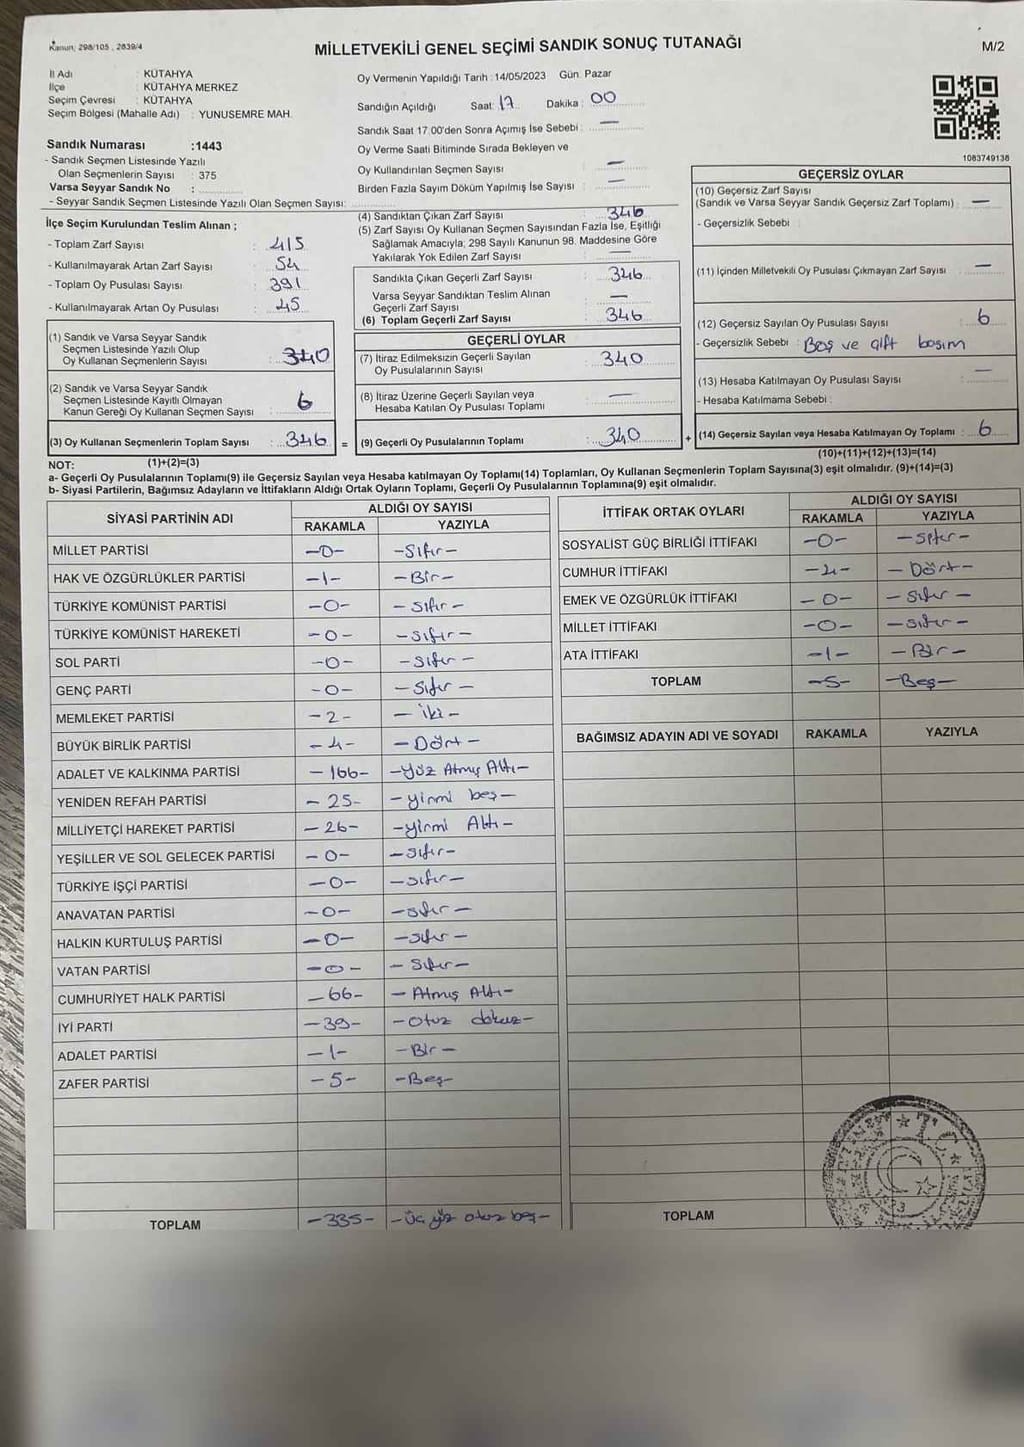 Kanun: 298/105 , 2839/4
MİLLETVEKİLİ GENEL SEÇİMİ SANDIK SONUÇ TUTANAĞI
M/2
İl Adı : KÜTAHYA
İlçe : KÜTAHYA MERKEZ
Seçim Çevresi : KÜTAHYA
Seçim Bölgesi (Mahalle Adı) : YUNUSEMRE MAH.
Sandık Numarası :1443
- Sandık Seçmen Listesinde Yazılı
Olan Seçmenlerin Sayısı : 375
Varsa Seyyar Sandık No :
- Seyyar Sandık Seçmen Listesinde Yazılı Olan Seçmen Sayısı:
Oy Vermenin Yapıldığı Tarih : 14/05/2023 Gün: Pazar
Sandığın Açıldığı Saat: 17 Dakika : 00
Sandık Saat 17.00'den Sonra Açımış İse Sebebi : —
Oy Verme Saati Bitiminde Sırada Bekleyen ve
Oy Kullandırılan Seçmen Sayısı : —
Birden Fazla Sayım Döküm Yapılmış İse Sayısı : —
1083749138
İlçe Seçim Kurulundan Teslim Alınan ;
- Toplam Zarf Sayısı : 415
- Kullanılmayarak Artan Zarf Sayısı : 54
- Toplam Oy Pusulası Sayısı : 391
- Kullanılmayarak Artan Oy Pusulası : 45
(1) Sandık ve Varsa Seyyar Sandık
Seçmen Listesinde Yazılı Olup
Oy Kullanan Seçmenlerin Sayısı : 340
(2) Sandık ve Varsa Seyyar Sandık
Seçmen Listesinde Kayıtlı Olmayan
Kanun Gereği Oy Kullanan Seçmen Sayısı : 6
(3) Oy Kullanan Seçmenlerin Toplam Sayısı : 346 =
(1)+(2)=(3)
(4) Sandıktan Çıkan Zarf Sayısı : 346
(5) Zarf Sayısı Oy Kullanan Seçmen Sayısından Fazla İse, Eşitliği
Sağlamak Amacıyla; 298 Sayılı Kanunun 98. Maddesine Göre
Yakılarak Yok Edilen Zarf Sayısı : —
Sandıkta Çıkan Geçerli Zarf Sayısı : 346
Varsa Seyyar Sandıktan Teslim Alınan
Geçerli Zarf Sayısı : —
(6) Toplam Geçerli Zarf Sayısı : 346
GEÇERLİ OYLAR
(7) İtiraz Edilmeksizin Geçerli Sayılan
Oy Pusulalarının Sayısı : 340
(8) İtiraz Üzerine Geçerli Sayılan veya
Hesaba Katılan Oy Pusulası Toplamı : —
(9) Geçerli Oy Pusulalarının Toplamı : 340 +
GEÇERSİZ OYLAR
(10) Geçersiz Zarf Sayısı
(Sandık ve Varsa Seyyar Sandık Geçersiz Zarf Toplamı) : —
- Geçersizlik Sebebi :
(11) İçinden Milletvekili Oy Pusulası Çıkmayan Zarf Sayısı : —
(12) Geçersiz Sayılan Oy Pusulası Sayısı : 6
- Geçersizlik Sebebi : Boş ve çift basım
(13) Hesaba Katılmayan Oy Pusulası Sayısı : —
- Hesaba Katılmama Sebebi :
(14) Geçersiz Sayılan veya Hesaba Katılmayan Oy Toplamı : 6
(10)+(11)+(12)+(13)=(14)
NOT:
a- Geçerli Oy Pusulalarının Toplamı(9) ile Geçersiz Sayılan veya Hesaba katılmayan Oy Toplamı(14) Toplamları, Oy Kullanan Seçmenlerin Toplam Sayısına(3) eşit olmalıdır. (9)+(14)=(3)
b- Siyasi Partilerin, Bağımsız Adayların ve İttifakların Aldığı Ortak Oyların Toplamı, Geçerli Oy Pusulalarının Toplamına(9) eşit olmalıdır.
SİYASİ PARTİNİN ADI
ALDIĞI OY SAYISI
RAKAMLA YAZIYLA
MİLLET PARTİSİ -0- -Sıfır-
HAK VE ÖZGÜRLÜKLER PARTİSİ -1- -Bir-
TÜRKİYE KOMÜNİST PARTİSİ -0- -Sıfır-
TÜRKİYE KOMÜNİST HAREKETİ -0- -sıfır-
SOL PARTİ -0- -sıfır-
GENÇ PARTİ -0- -Sıfır-
MEMLEKET PARTİSİ -2- -iki-
BÜYÜK BİRLİK PARTİSİ -4- -Dört-
ADALET VE KALKINMA PARTİSİ -166- -yüz Atmış Altı-
YENİDEN REFAH PARTİSİ -25- -yirmi beş-
MİLLİYETÇİ HAREKET PARTİSİ -26- -yirmi Altı-
YEŞİLLER VE SOL GELECEK PARTİSİ -0- -sıfır-
TÜRKİYE İŞÇİ PARTİSİ -0- -sıfır-
ANAVATAN PARTİSİ -0- -sıfır-
HALKIN KURTULUŞ PARTİSİ -0- -sıfır-
VATAN PARTİSİ -0- -sıfır-
CUMHURİYET HALK PARTİSİ -66- -Atmış Altı-
İYİ PARTİ -39- -Otuz dokuz-
ADALET PARTİSİ -1- -Bir-
ZAFER PARTİSİ -5- -Beş-
TOPLAM -335- -üç yüz otuz beş-
İTTİFAK ORTAK OYLARI
ALDIĞI OY SAYISI
RAKAMLA YAZIYLA
SOSYALİST GÜÇ BİRLİĞİ İTTİFAKI -0- -sıfır-
CUMHUR İTTİFAKI -4- -Dört-
EMEK VE ÖZGÜRLÜK İTTİFAKI -0- -sıfır-
MİLLET İTTİFAKI -0- -sıfır-
ATA İTTİFAKI -1- -Bir-
TOPLAM -5- -Beş-
BAĞIMSIZ ADAYIN ADI VE SOYADI RAKAMLA YAZIYLA
T.C.
TOPLAM